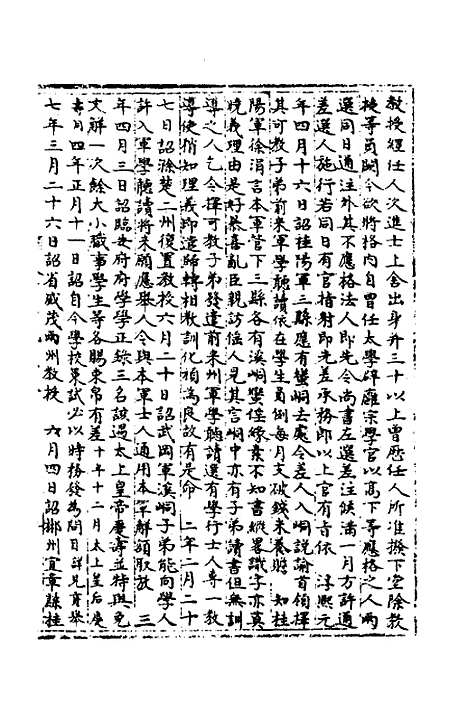 教授經任人次進士上舍出身年三十以上曾歷任人所准撥下堂除教
授等員闕今欲將格內自曾任太學辟廱宗學官以高下等應格之人兩
選同日通注外其不應格法人即先令尚書左選差注候滿一月方許通
差選人施行若同日有官指射即先差承務郎以上官有旨依 淳熙元
年四月十六日詔桂陽軍三縣應有蠻峒去處令差人入峒說諭首領擇
其可教子弟前來軍學聽讀依在學生員例每月支破錢米養贍 知桂
陽軍徐涓言本軍管下三縣各有溪峒蠻猺緣素不知書縱畧識字亦莫
曉義理由是好暴喜亂臣親訪傜人見其言峒中亦有子弟讀書但無訓
導之人乞令擇可教子弟發遣前來州軍學聽讀選有學行士人專一教
導使稍知理義即遣歸轉相教訓化頑為良故有是命 二年二月二十
七日詔滁楚二州復置教授六月二十日詔武岡軍溪峒子弟能向學人
許入軍學聽讀將來願應舉人令與本軍士人通用本軍解額取放 三
年四月三日詔臨安府府學學正錄三名該遇太上皇帝慶壽並特與免
文解一次餘大小職事學生等各賜束帛有差十年十二月太上皇后慶
壽同四年正月十一日詔自今學校策試必以時務發為問目詳見貢舉
七年三月二十六日詔省威茂兩州教授 六月四日詔郴州宜章縣桂